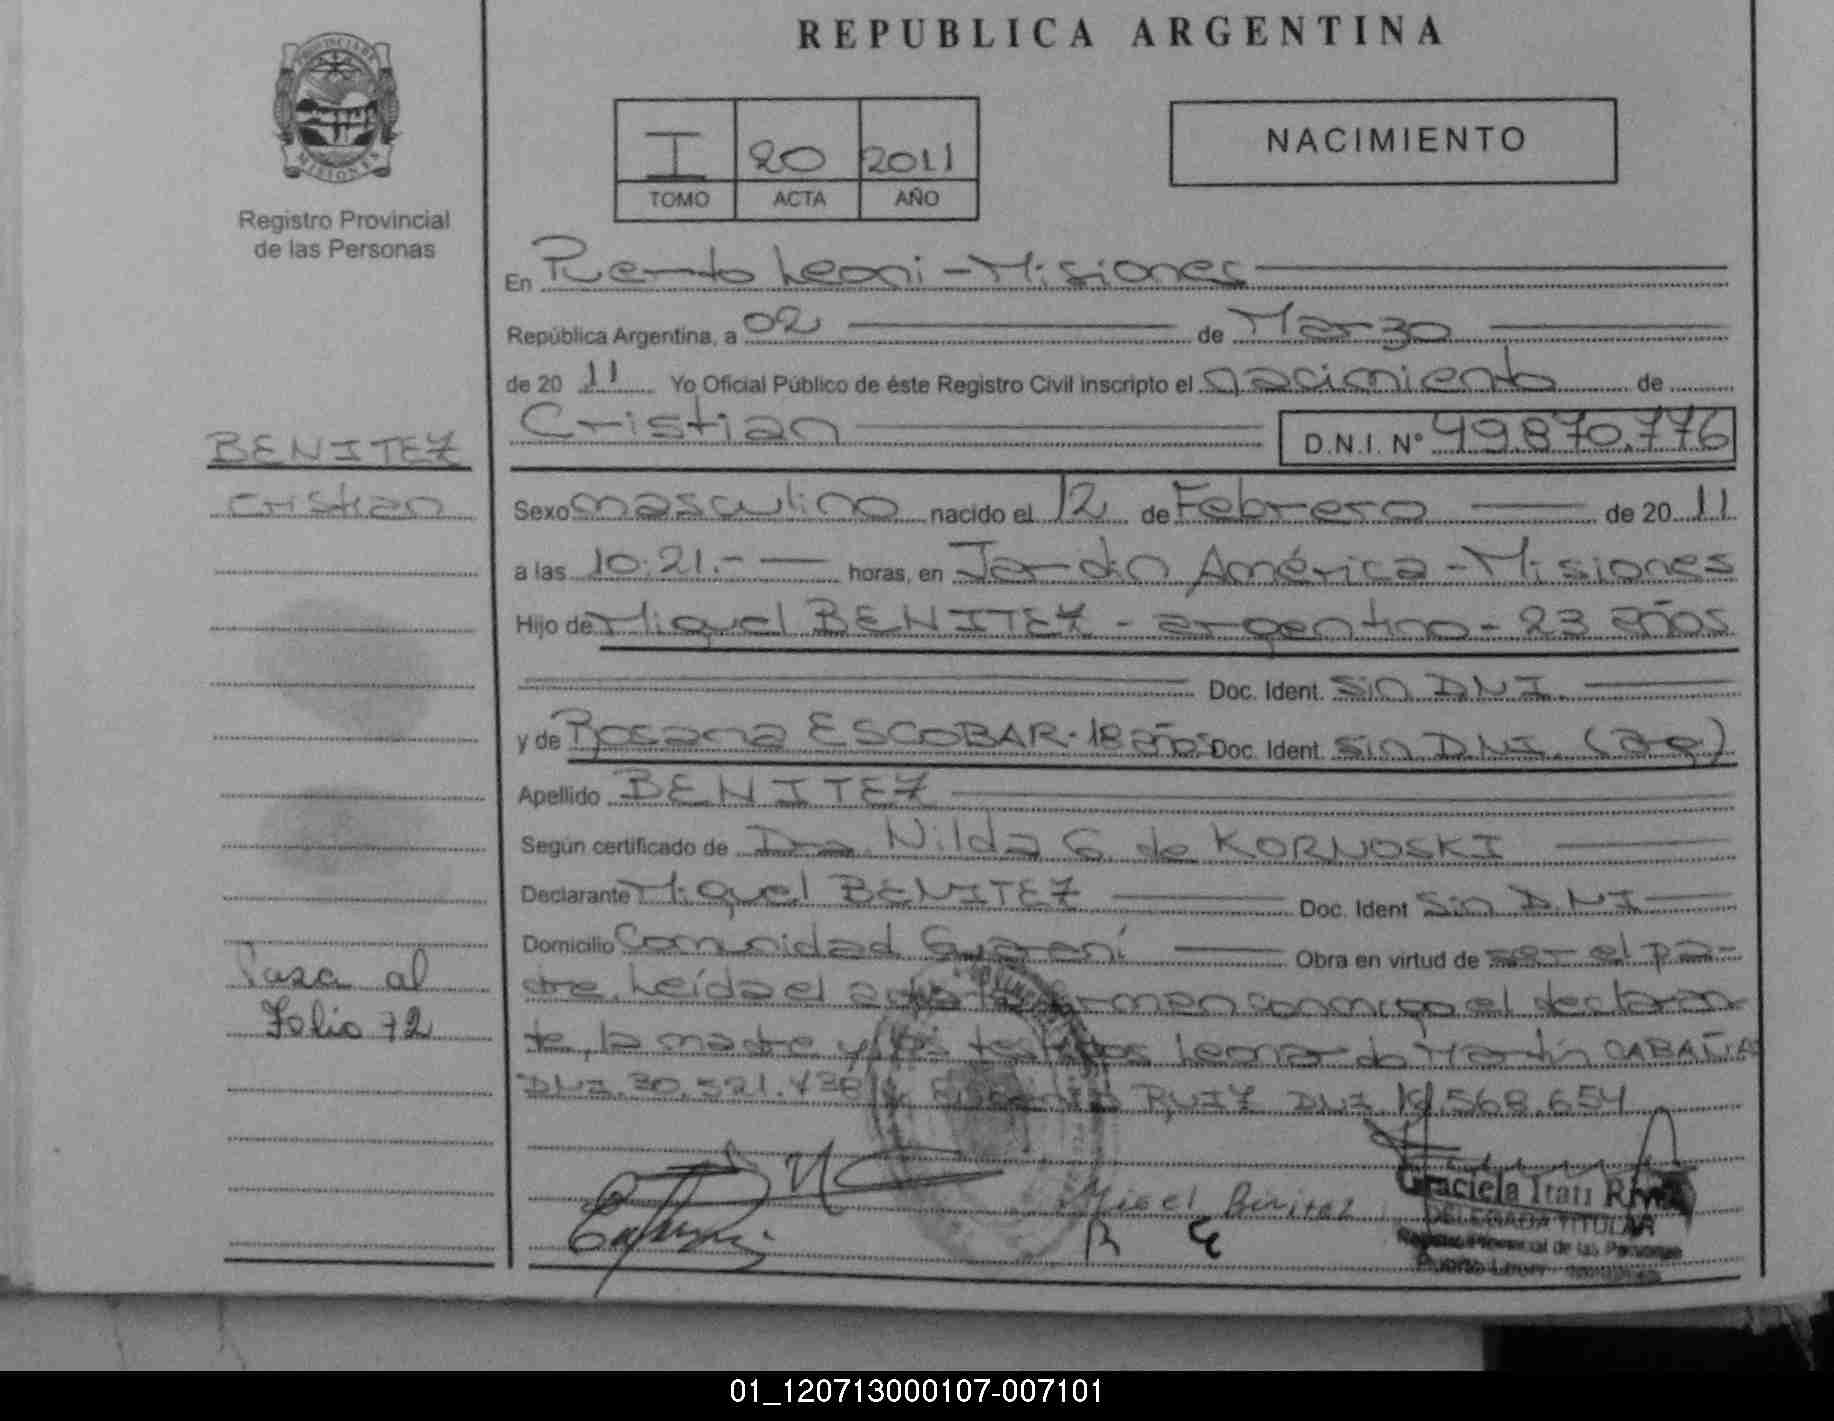 REPUBLICA ARGENTINA
PROVINCIA DE
MISIONES
Registro Provincial
de las Personas
I 20 2011
TOMO ACTA AÑO
NACIMIENTO
En Puerto Leoni - Misiones
República Argentina, a 02 de Marzo
de 20 11 Yo Oficial Público de éste Registro Civil inscripto el nacimiento de
Cristian D.N.I. N° 49.870.776
BENITEZ
Cristian
Sexo masculino nacido el 12 de Febrero de 20 11
a las 10:21.- horas, en Jardin América - Misiones
Hijo de Miguel BENITEZ - argentino - 23 años
Doc. Ident. Sin DNI
y de Rosana ESCOBAR - 18 años Doc. Ident. Sin DNI. (Ag)
Apellido BENITEZ
Según certificado de Dra. Nilda G. de KORNOSKI
Declarante Miguel BENITEZ Doc. Ident Sin D.N.I
Domicilio Comunidad Guaraní Obra en virtud de ser el pa-
dre. Leída el acta la firman conmigo el declaran-
te, la madre y los testigos Leonardo Martín CABAÑA
DNI. 30.521.438 y RUIZ DNI. 568.654
Pasa al
Folio 72
Migel Benitez
R E
Graciela Itati
DELEGADA TITULAR
Registro Provincial de las Personas
Puerto Leoni - Misiones
01_120713000107-007101